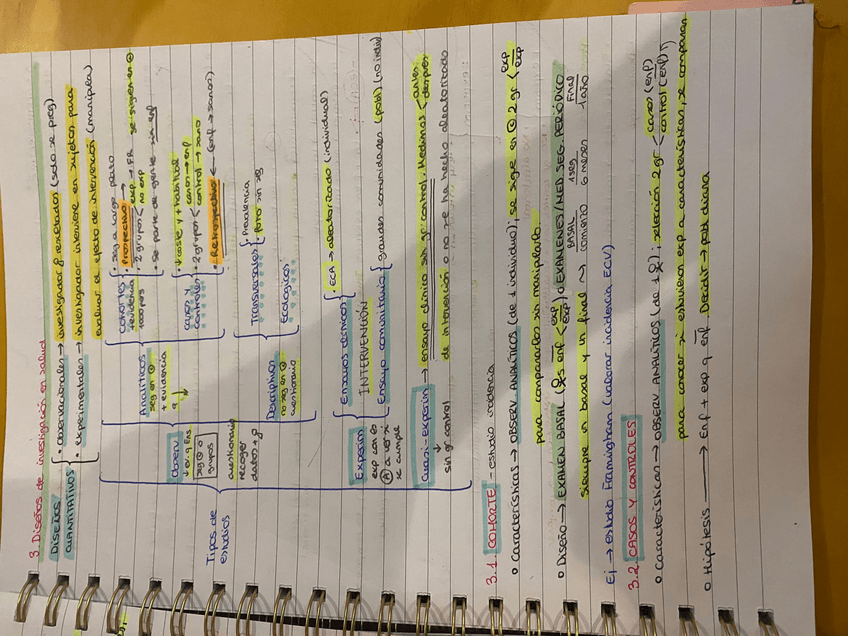 3. Diseños de investigación en salud
DISEÑOS CUANTITATIVOS
• Observacionales → investigador ∄ resultados (solo se preg)
• experimentales → investigador interviene en sujetos para
evaluar el efecto de intervención (manipula)
Tipos de estudios
Observ
↓ ev. q Ens
seg ⊕ o grupos
cuestionario
recoger datos +
Analíticos
seg en ⊕
+ evidencia
q ↓
Cohortes
+ evidencia
1000 pers
• seg a largo plazo
• Prospectivo →
2 grupos < exp → FR se siguen en ⊕
no exp
• Se parte de gente sin enf
casos y controles
• ↓ coste y + habitual
• 2 grupos < casos → enf
control → sano
• Retrospectivo ← (enf → sanos)
Descriptivos
no seg en ⊕
cuestionario
Transversales
prevalencia
foto sin seg
Ecológicos
Experim
exp con es
a ver si
se cumple
Ensayos clínicos
• ECA → aleatorizado (individual)
INTERVENCIÓN
Ensayo comunitario
grandes comunidades (pobl) (no indiv)
Cuasi-experim → ensayo clínico sin gr control. Medimos < antes
después
↓
sin gr control
de intervención o no se ha hecho aleatorizado
3.1. COHORTE - estudio incidencia
o Características → OBSERV ANALÍTICOS (de + individuo), se sigue en ⊕ 2 gr < exp
exp
para compararlos sin manipularlo
o Diseño → EXAMEN BASAL (enf < exp
exp) o EXAMENES/MED SEG. PERIÓDICO
siempre un basal y un final → BASAL comienzo 1 seg 6 meses Final 1 año
Ej → estudio Framingham (valorar incidencia ECV)
3.2. CASOS Y CONTROLES
o Características → OBSERV ANALÍTICOS (de 1), selección 2 gr < casos (enf)
control (enf)
para conocer si estuvieron exp a características, se comparan
o Hipótesis → Enf + exp q enf. Decidir → pobl diana